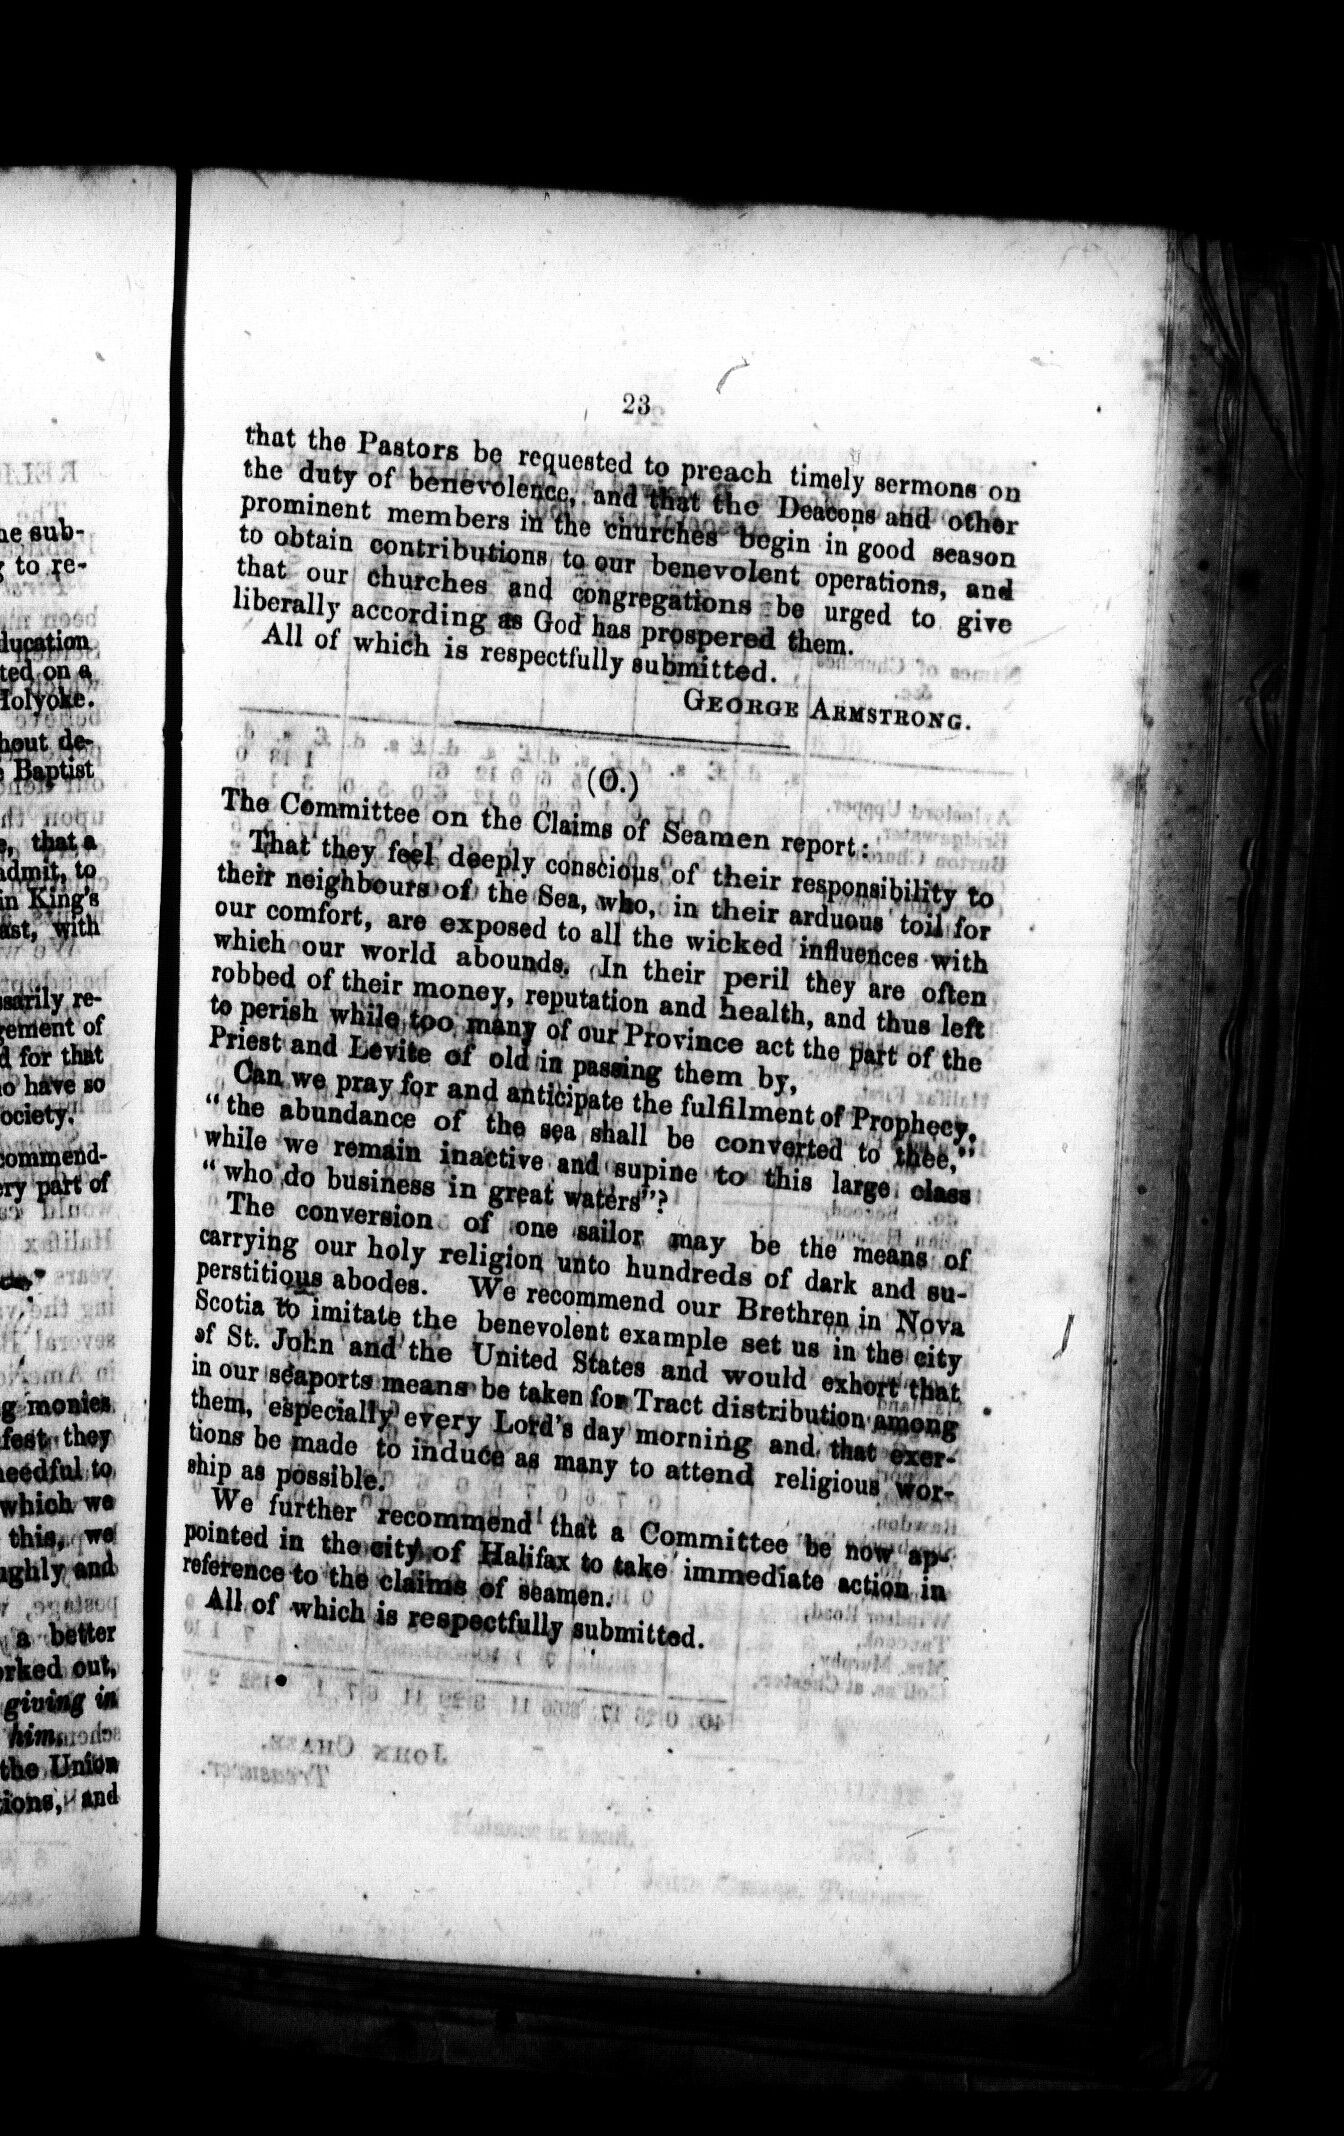 23
that the Pastors be requested to preach timely sermons on
the duty of benevolence, and that the Deacons and other
prominent members in the churches begin in good season
to obtain contributions to our benevolent operations, and
that our churches and congregations be urged to give
liberally according as God has prospered them.
All of which is respectfully submitted.
GEORGE ARMSTRONG.
(O.)
The Committee on the Claims of Seamen report:
That they feel deeply conscious of their responsibility to
their neighbours of the Sea, who, in their arduous toil for
our comfort, are exposed to all the wicked influences with
which our world abounds. In their peril they are often
robbed of their money, reputation and health, and thus left
to perish while too many of our Province act the part of the
Priest and Levite of old in passing them by,
Can we pray for and anticipate the fulfilment of Prophecy,
"the abundance of the sea shall be converted to thee,"
while we remain inactive and supine to this large class
"who do business in great waters"?
The conversion of one sailor may be the means of
carrying our holy religion unto hundreds of dark and su-
perstitious abodes. We recommend our Brethren in Nova
Scotia to imitate the benevolent example set us in the city
of St. John and the United States and would exhort that
in our seaports means be taken for Tract distribution among
them, especially every Lord's day morning and that exer-
tions be made to induce as many to attend religious wor-
ship as possible.
We further recommend that a Committee be now ap-
pointed in the city of Halifax to take immediate action in
reference to the claims of seamen.
All of which is respectfully submitted.
he sub-
to re-
ducation
ted on a
Holyoke.
hout de-
Baptist
that a
admit, to
in King's
ast, with
ssarily re-
gement of
d for that
ho have so
ociety.
commend-
ery part of
g monies
fest they
needful to
which we
this, we
ughly and
a better
orked out,
giving in
him.
the Union
tions, and